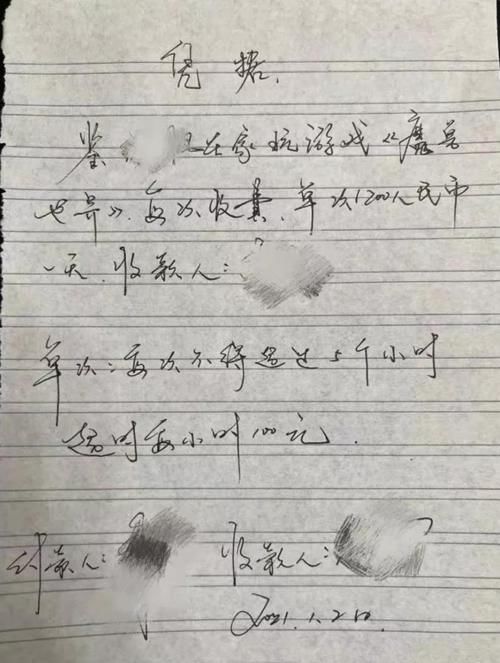 凭据.
鉴 在家玩游戏《魔兽
世界》.每次收费.单次1200人民币
一天.收款人:
单次:每次不得超过5个小时
超时每小时100元.
付款人: 收款人:
2021.1.2